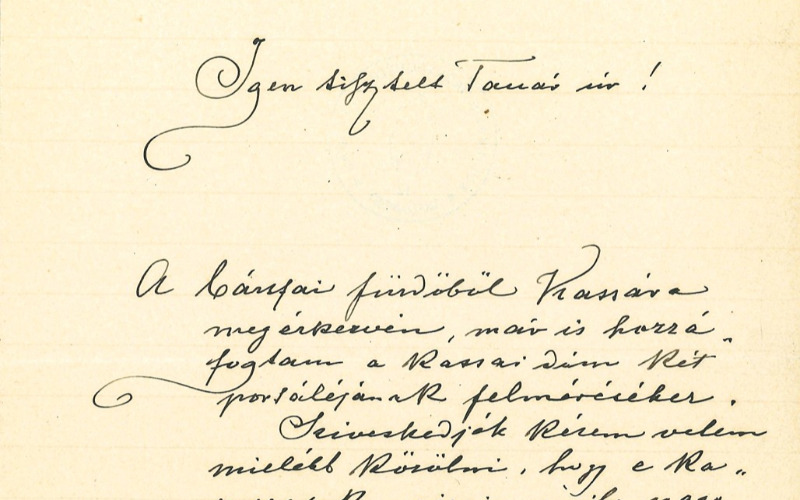 Igen tisztelt Tanár úr!
A bártfai fürdőből Kassára
megérkezvén, már is hozzá„
fogtam a kassai dóm két
portáléjának felméréséhez.
Sziveskedjék kérem velem
mielébb közölni, hogy e ka„